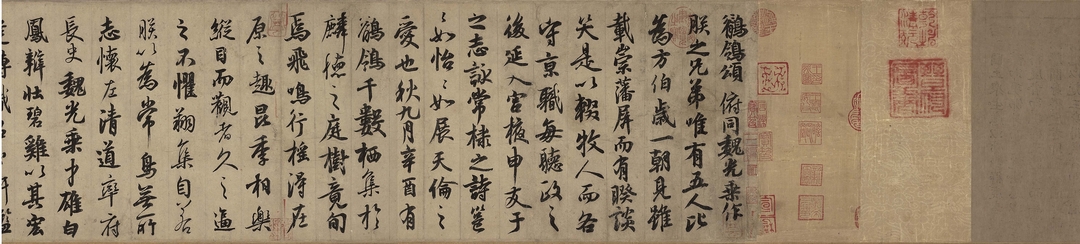 鶺鴒頌 俯同魏光乘作
朕之兄弟唯有五人比
為方伯歲一朝見雖
載崇藩屏而有睽談
笑是以輟牧人而各
守京職每聽政之
後延入宮掖申友于
之志詠常棣之詩邕
々如怡々如展天倫之
愛也秋九月辛酉有
鶺鴒千數栖集於
麟德之庭樹竟旬
焉飛鳴行搖得在
原之趣昆季相樂
縱目而觀者久之逼
之不懼翔集自若
朕以為常鳥無所
志懷左清道率府
長史魏光乘才雄白
鳳辯壯碧雞以其宏